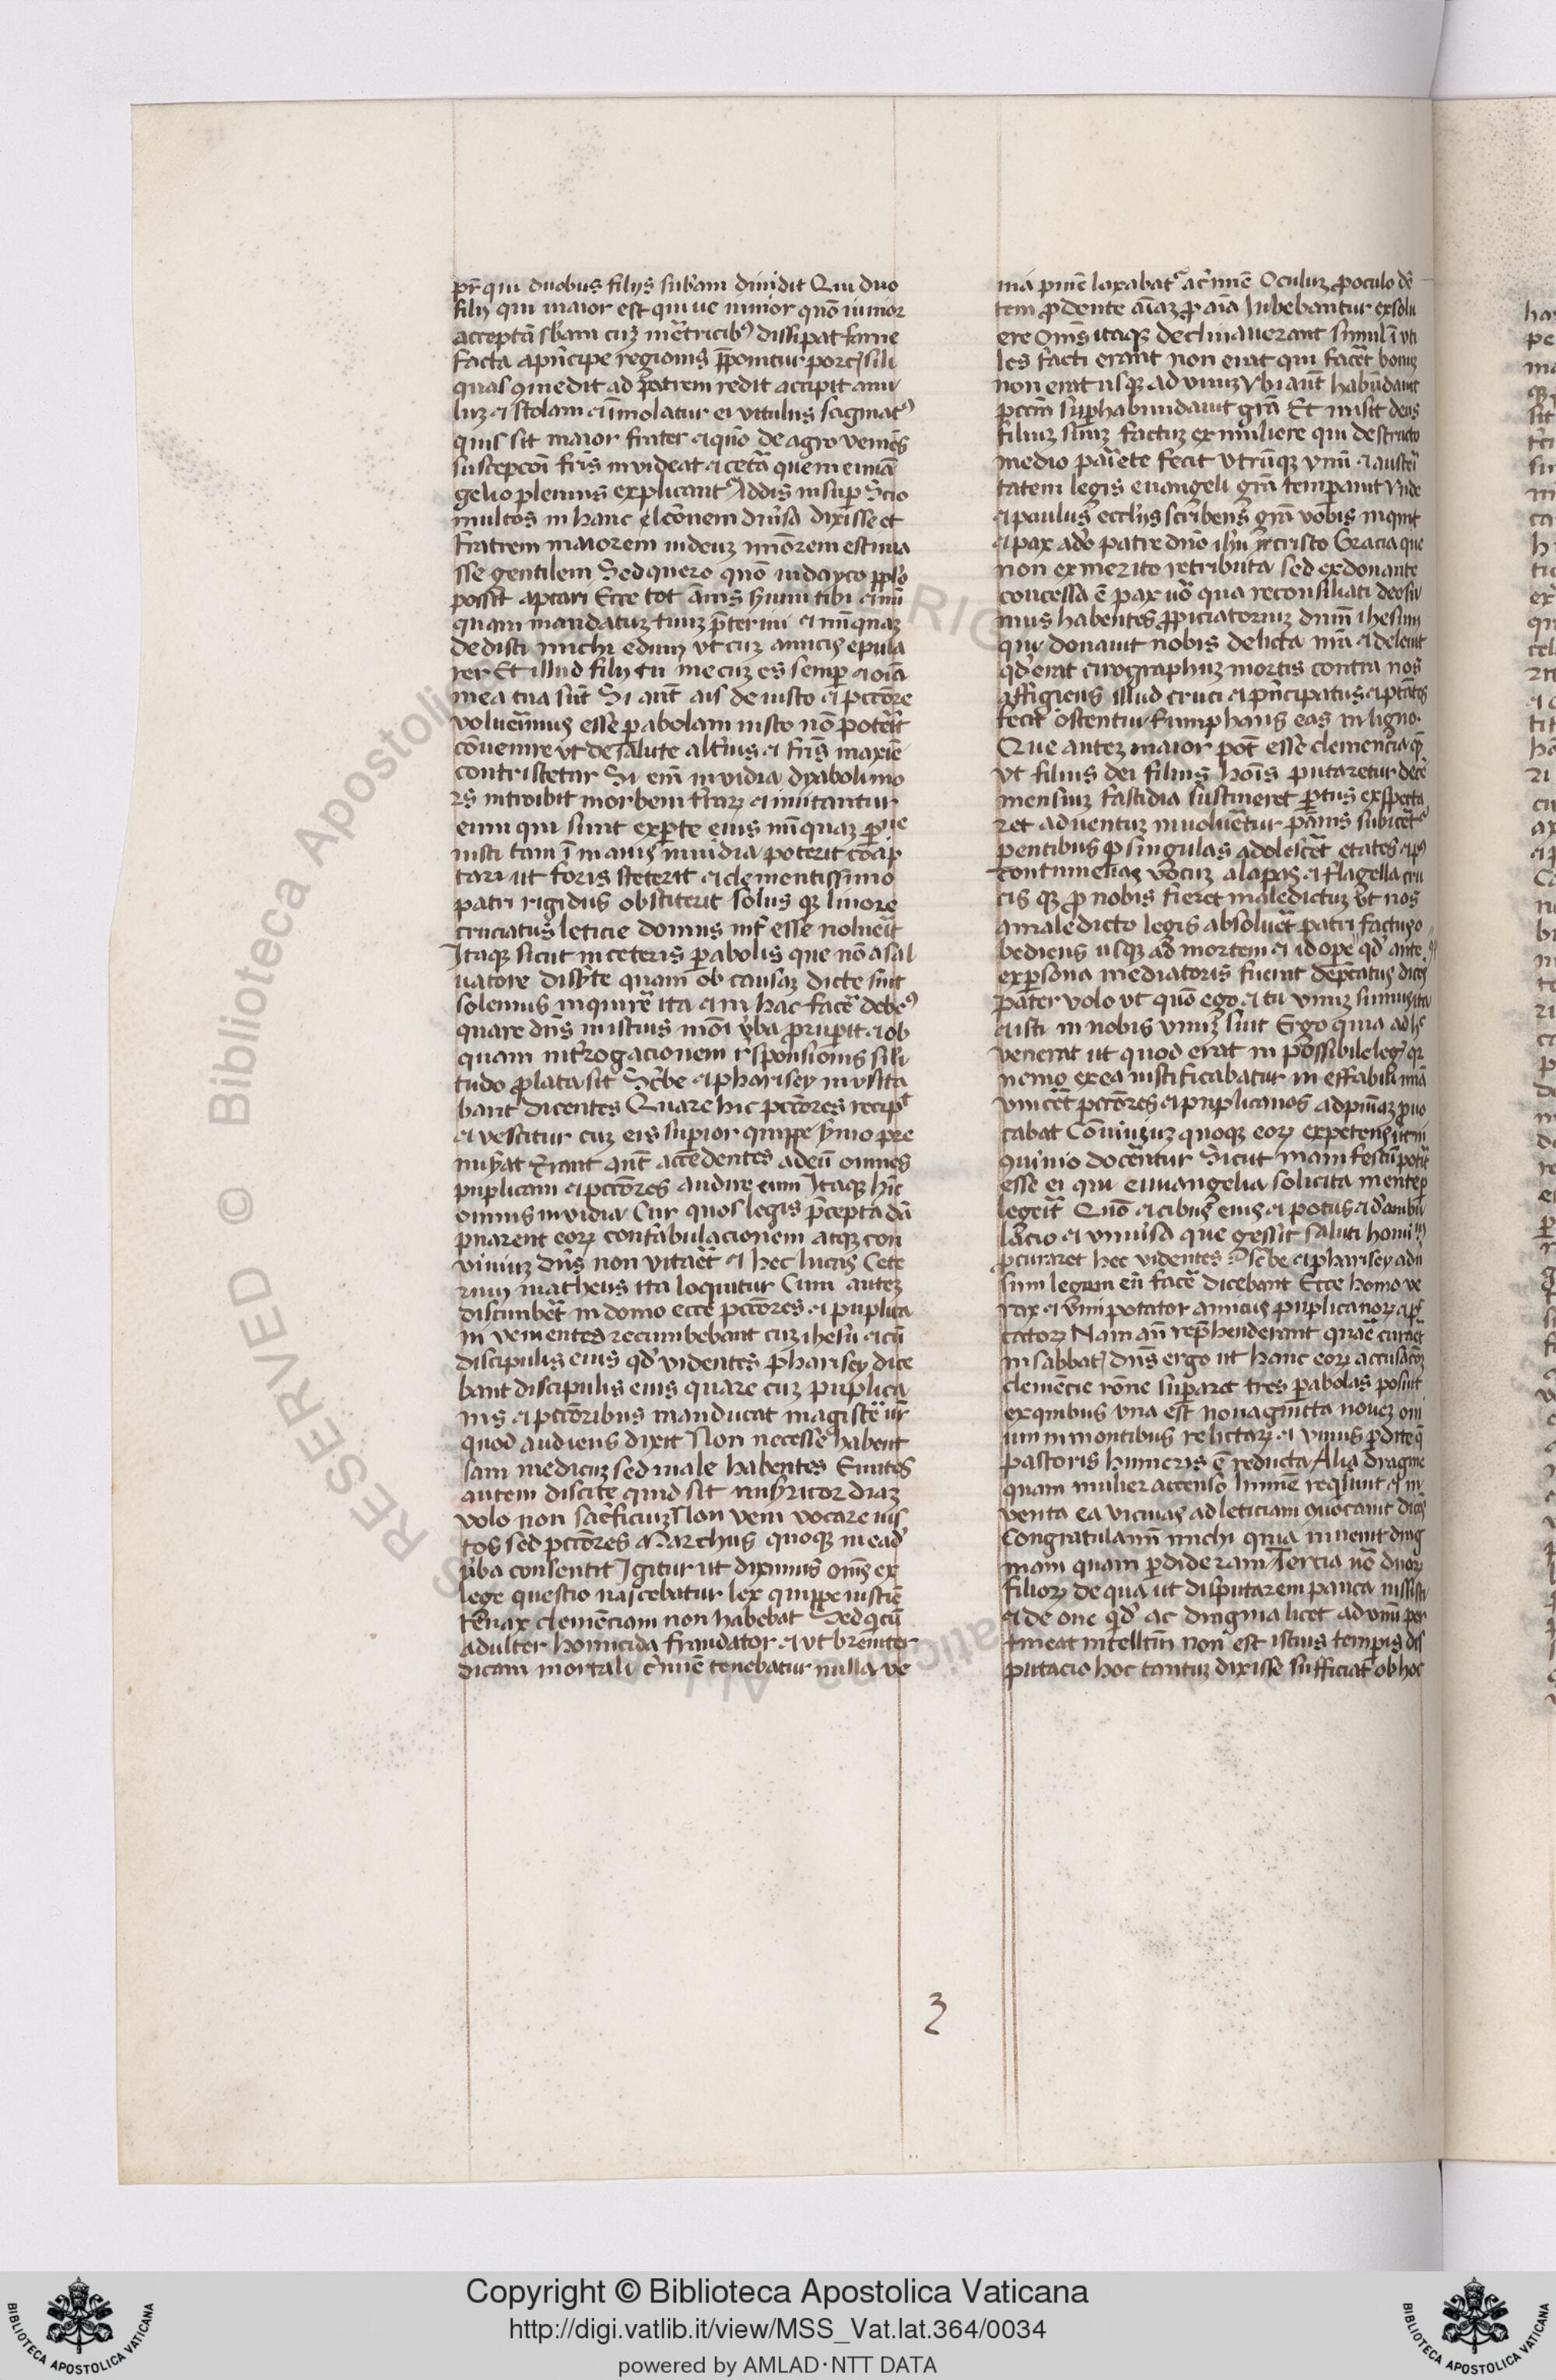 pr̄ qui duobus filijs sūbam diuidit Qui duo
filij qui maior est qui ue minor quō iunior
acceptā sb̄am cuꝫ mēretricibꝰ dissipat fame
facta a p̄ncipe regionis p̄ponitur porcꝭ sili
quas ꝯmedit ad patrem redit accipit anu
luꝫ et stolam et īmolatur ei vitulus saginatꝰ
quis sit maior frater et quō de agro veniēs
suscepcōi fr̄is inuideat et cet̄a que in euuā
gelio plenius explicant᷑ Addis insup̄ Scio
multos in hanc lcōnem diu̓sa dixisse et
fratrem maiorem iudeuꝫ mīorem estima
sse gentilem Sed quero quō iudayco pp̄lo
possit aptari Ecce tot ānis s̓uiui tibi et nū
quam mandatuꝫ tuuꝫ p̄teriui et nūquaꝫ
dedisti michi edum vt cuꝫ amicis epula
rer Et illud fili tu mecuꝫ es semꝑ et oīa
mea tua sūt Si aūt ais de iusto et pctōre
voluerimus esse ꝑabolam iusto nō poterit
cōuenire vt de salute alt̓ius et fr̄is maxīe
contristetur Si em̄ inuidia dyaboli mo
rs introibit in orbem t̓raꝝ et imitantur
eum qui sunt ex ꝑte eius nūquaꝫ ꝑsōe
iusti tam īmanis inuidia poterit coap
tari ut foris steterit et clementissimo
patri rigidus obstiterit solus qꝫ liuore
cruciatus leticie domus int̓esse noluerit
Itaqꝫ sicut in ceteris ꝑabolis que nō a sal
uatore dissūte quam ob causaꝫ dicte sint
solemus inquirē ita et in hac facē debeꝰ
quare dn̄s in istius mōi v̓ba ꝓrupit et ob
quam int̓rogacionem r̓sponsionis simili
tudo ꝓlata sit Sc̓be et pharisey in usita
bant dicentes Quare hic pctōres recipit
et vescitur cuꝫ eis supior quippe s̓mo pre
mis̓at Erant aūt accedentes ad eū omnes
puplicani et pctōres audire eum Itaqꝫ hīc
omnis inuidia Cur quos legis p̄cepta dā
pnarent eoꝝ confabulacionem atqꝫ con
uiuiuꝫ dn̄s non vitāet et hec lucas Cete
rum matheus ita loquitur Cum auteꝫ
discumbēt in domo ecce pctōres et puplica
ni venientes recumbebant cuꝫ ihesu et cū
discipulis eius qd̓ videntes pharisey dice
bant discipulis eius quare cuꝫ puplica
nis et pctōribus manducat magister ur̄
quod audiens dixit Non necesse habent
sani medicuꝫ sed male habentes Euntes
autem discite quid sit mis̓ricordiaꝫ
volo non sac̓ficiuꝫ Non veni vocare ius
tos sed pctōres Marchus quoqꝫ in ead̓
v̓ba consentit Igitur ut diximus om̄s ex
lege questio nascebatur lex quippe iusticē
tenax clemēciam non habebat Sed qi̓cū
adulter homicida fraudator et vt breuiter
dicam mortali c̓mīe tenebatur nulla ve
nia pnīe laxabat᷑ a c̓mīe Oculuꝫ ꝓ oculo dē
tem ꝓ dente aīaꝫ ꝓ aīa Iubebantur exsolu
ere Om̄s itaqꝫ declinauerant simul īuti
les facti erant non erat qui facēt bonuꝫ
non erat usqꝫ ad vnuꝫ Vbi aūt habūdauit
pccm̄ suꝑhabundauit grā Et misit deus
filiuꝫ suuꝫ factuꝫ ex muliere qui destructo
medio pariete fecit vtrūqꝫ vnū et austeri
tatem legis euangeli grā temꝑauit Vnde
et paulus eccl̓ijs scribens grā vobis inquit
et pax a dō patre dn̄o ih̄u cristo Gracia que
non ex merito retributa sed ex donante
concessa ē pax u̓o qua reconsiliati deo su
mus habentes ꝓpiciatoriuꝫ dnm̄ ihesum
qui donauit nobis delicta n̄ra et deleuit
qd̓ erat cirographuꝫ mortis contra nos
affigiens illud cruci et p̄ncipatus et ptātes
fecit ostentui triumphans eas in ligno.
Que auteꝫ maior pōt esse clemencia qꝫ
vt filius dei filius hoīs putaretur decē
mensiuꝫ fastidia sustineret ꝑtus exspecta
ret aduentuꝫ inuoluetur pānis subicet᷑
ꝑentibus ꝑ singulas adolescēt etates et pꝰ
contumelias vōcuꝫ alapas et flagella cru
cis qꝫ ꝓ nobis fieret maledictuꝫ vt nos
a maledicto legis absoluēt patri factus o
bediens usqꝫ ad mortem et id oꝑe qd̓ ante
ex ꝑsona mediatoris fuerit dep̄catus dicēs
pater volo vt quō ego et tu vnuꝫ sumus ita
et isti in nobis vnuꝫ sint Ergo quia ad hꝰ
venerat ut quod erat inpossibile legꝭ qꝛ
nemo ex ea iustificabatur ineffabili mīa
vincēt pctōres et puplicanos ad pnīaꝫ ꝓuo
cabat Conuiuiuꝫ quoqꝫ eoꝝ expetens ut in
ꝯuiuio docerentur Sicut manifestū poterit
esse ei qui euuangelia solicita mente ꝑ
legerit Quō et cibus eius et potus et deambu
lacio et vniu̓sa que gessit saluti hominū
ꝓcuraret hec videntes Sc̓be et pharisey adu̓
sum legem eū facē dicebant Ecce homo vo
rax et vini potator amicus puplicanoꝝ et pc̄
catoꝝ Nam an̄ rep̄henderant quare curaret
in sabbatꝭ dn̄s ergo ut hanc eoꝝ accusacōeꝫ
clemēcie rōne suꝑaret tres ꝑabolas posuit
ex quibus vna est nonaginta noueꝫ oui
um in montibus relictaꝝ et vnius ꝑdite q̄
pastoris humeris ē reducta Alia dragme
quam mulier accenso lumīe reqsiuit et in
venta ea vicinas ad leticiam ꝯuocauit dicēs
Congratulamī michi quia inueni drag
mam quam ꝑdideram Tercia ue̓ duoꝝ
filioꝝ de qua ut disputarem pauca iussisti
et de oue qd̓ ac dragma licet ad vnū per
tineat intellc̄m non est istius tempis dis
putacio hoc tantuꝫ dixisse sufficiat ob hoc
3
Copyright © Biblioteca Apostolica Vaticana
http://digi.vatlib.it/view/MSS_Vat.lat.364/0034
powered by AMLAD·NTT DATA